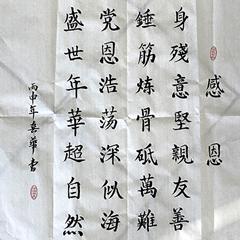 感恩
身殘意堅親友善
錘筋炼骨砥萬難
党恩浩荡深似海
盛世年華超自然
丙申年喜華书